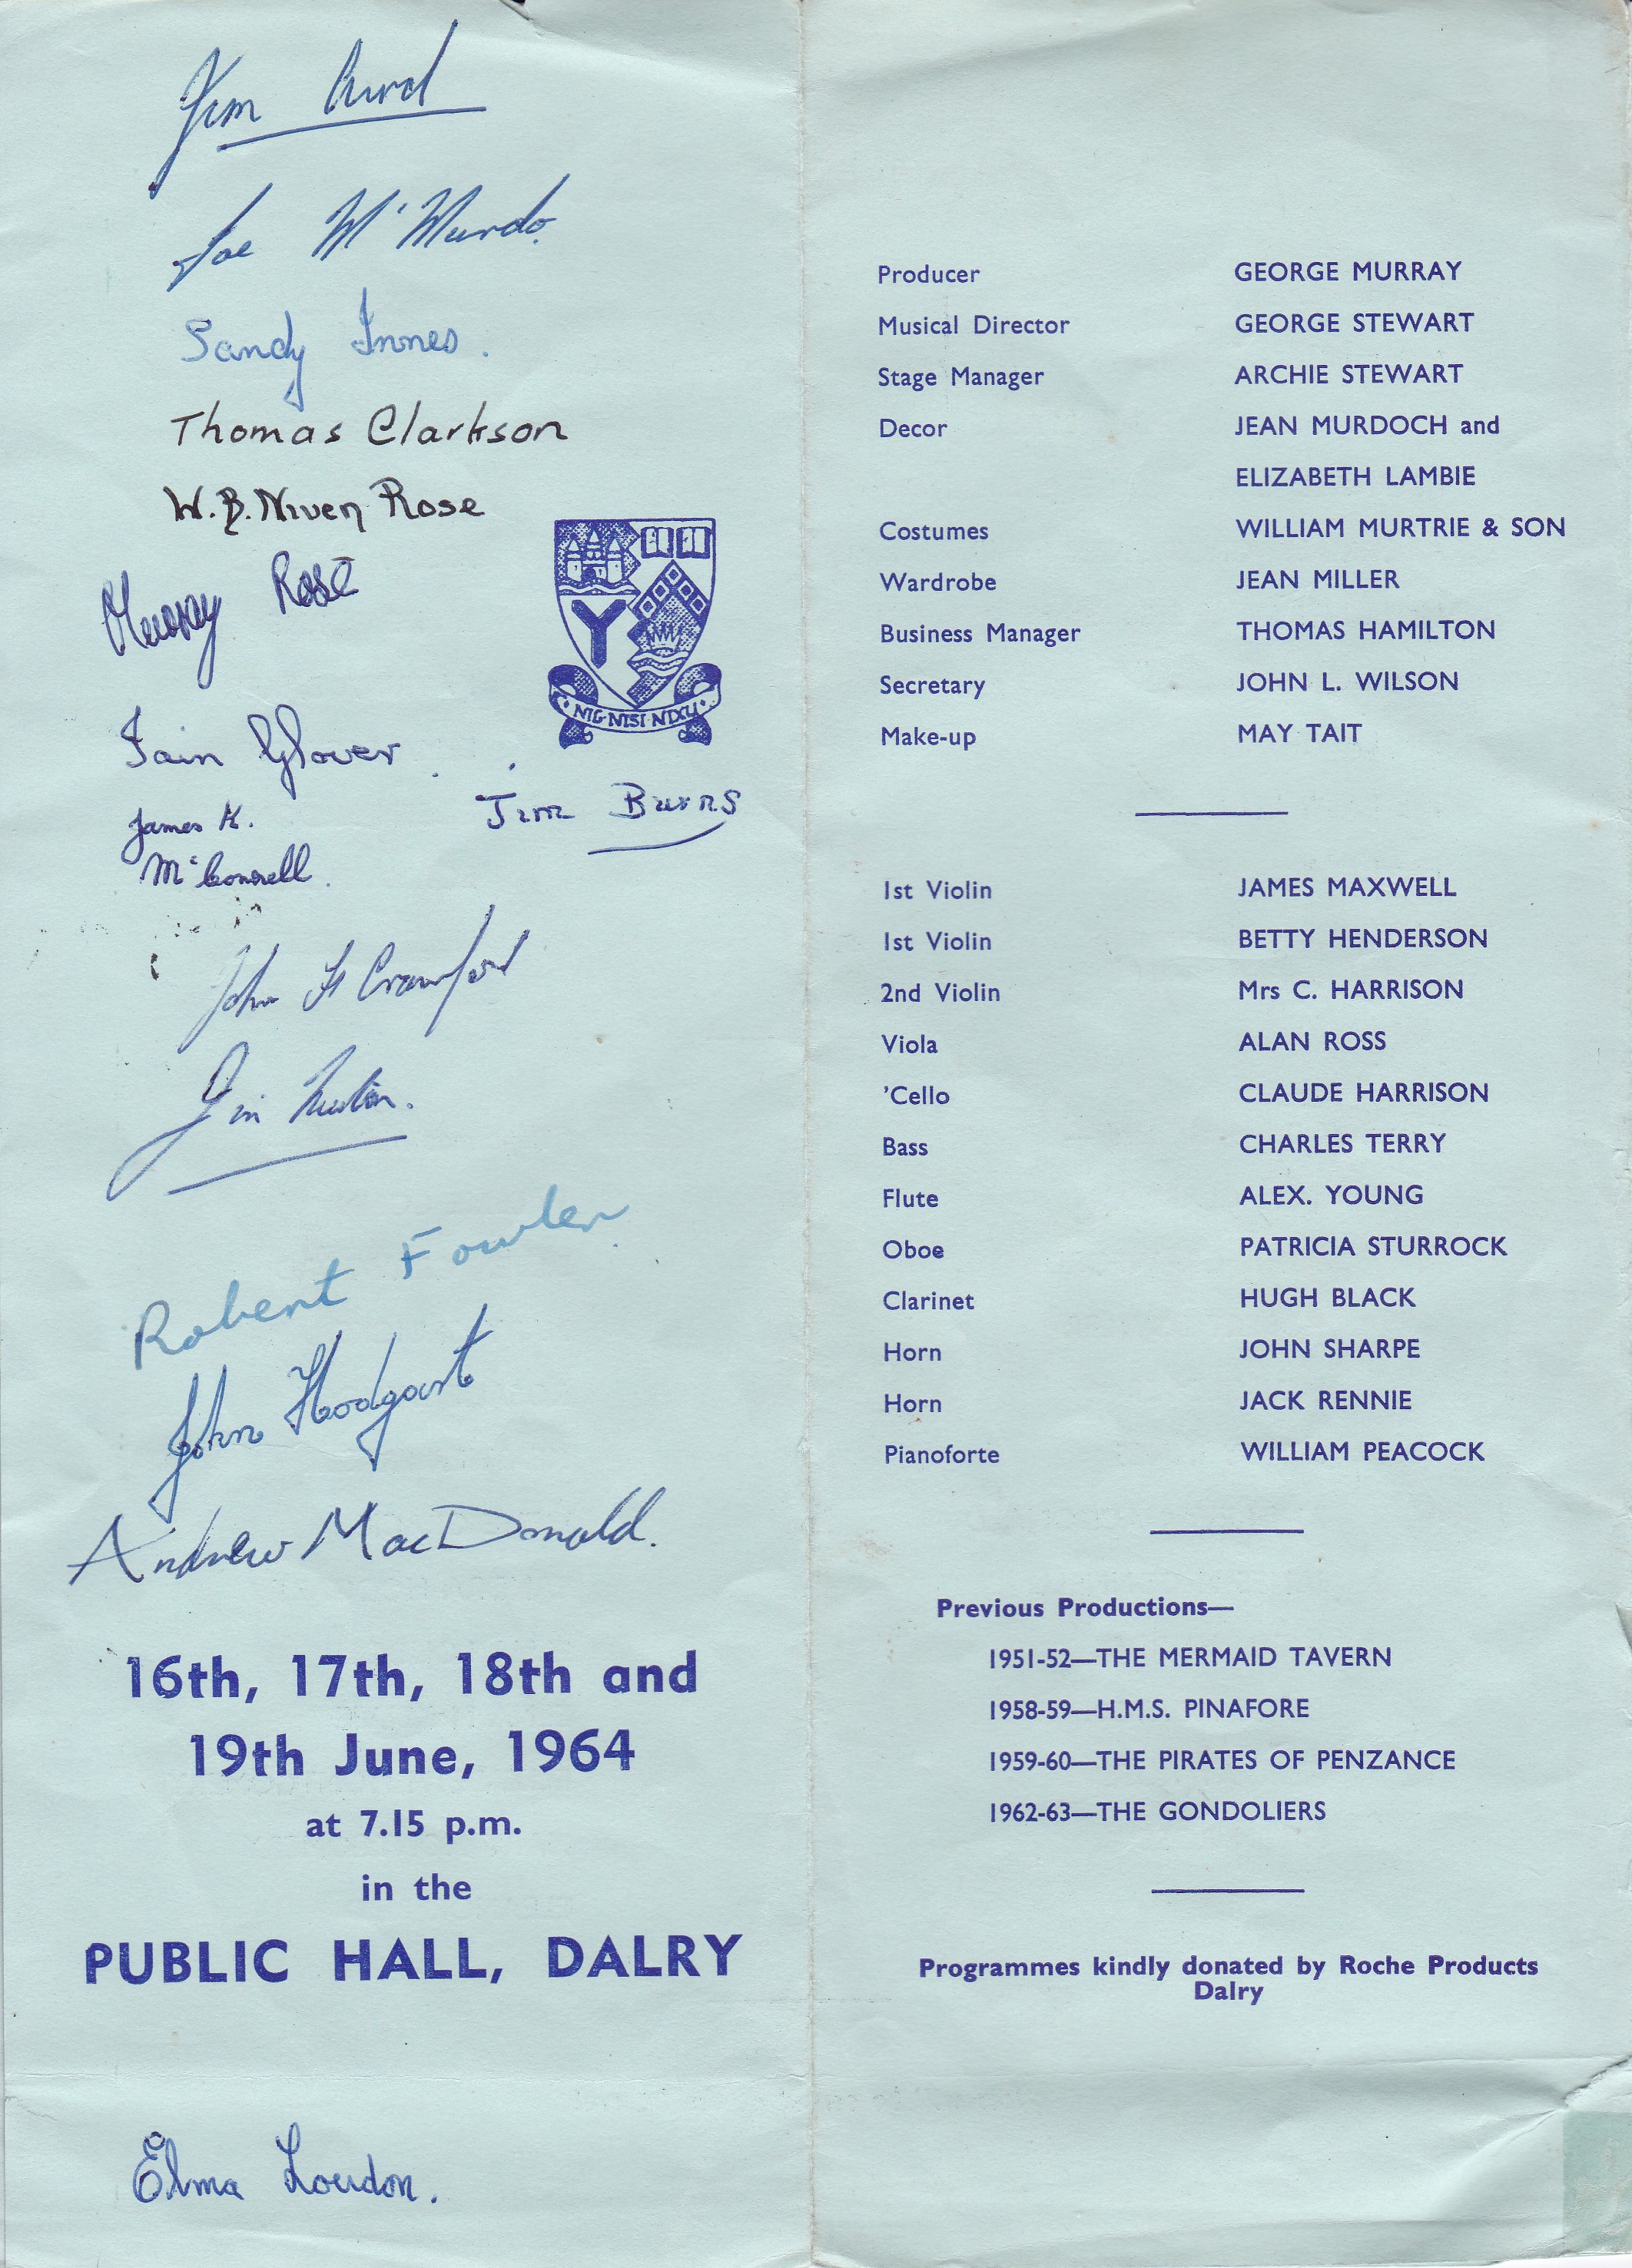 Jim
Joe McMurdo.
Sandy Innes.
Thomas Clarkson
W.B. Niven Rose
Murray Rose
NIG·NISI·NIXU
Iain Glover.
Jim Burns
James K.
McConnell.
John H Crawford
Jim
Robert Fowler.
John Hodgart
Andrew MacDonald.
16th, 17th, 18th and
19th June, 1964
at 7.15 p.m.
in the
PUBLIC HALL, DALRY
Elma Loudon.
Producer GEORGE MURRAY
Musical Director GEORGE STEWART
Stage Manager ARCHIE STEWART
Decor JEAN MURDOCH and
ELIZABETH LAMBIE
Costumes WILLIAM MURTRIE & SON
Wardrobe JEAN MILLER
Business Manager THOMAS HAMILTON
Secretary JOHN L. WILSON
Make-up MAY TAIT
1st Violin JAMES MAXWELL
1st Violin BETTY HENDERSON
2nd Violin Mrs C. HARRISON
Viola ALAN ROSS
'Cello CLAUDE HARRISON
Bass CHARLES TERRY
Flute ALEX. YOUNG
Oboe PATRICIA STURROCK
Clarinet HUGH BLACK
Horn JOHN SHARPE
Horn JACK RENNIE
Pianoforte WILLIAM PEACOCK
Previous Productions—
1951-52—THE MERMAID TAVERN
1958-59—H.M.S. PINAFORE
1959-60—THE PIRATES OF PENZANCE
1962-63—THE GONDOLIERS
Programmes kindly donated by Roche Products
Dalry